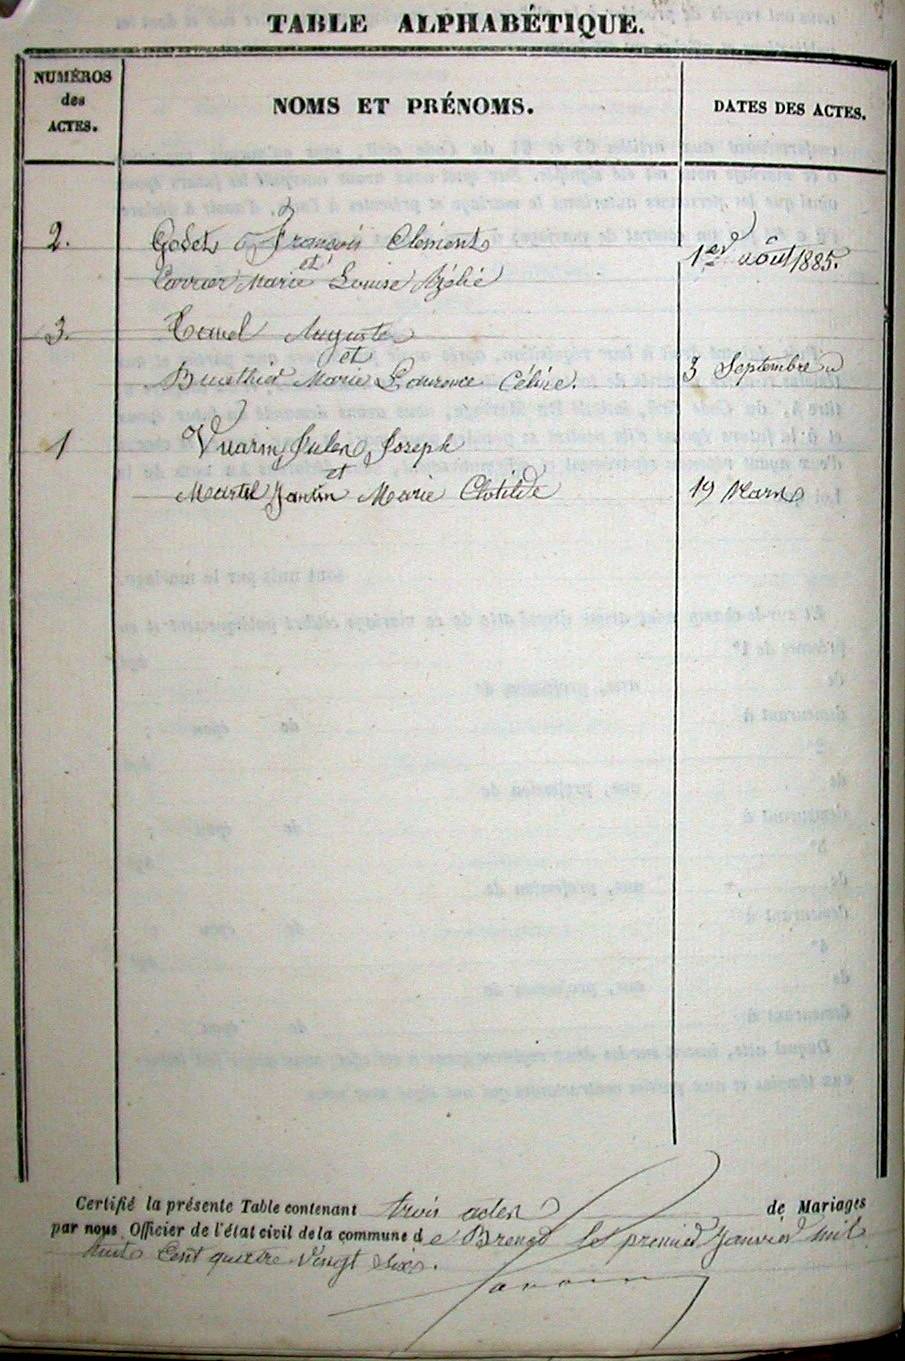 TABLE ALPHABÉTIQUE.
NUMÉROS des ACTES.
NOMS ET PRÉNOMS.
DATES DES ACTES.
2.
Godet François Clément
et
Carrier Marie Louise Azélie
1er août 1885.
3.
Auguste
et
Buathier Marie Laurence Céline.
3 Septembre
1
Vuarin Jules Joseph
et
Martel Jantin Marie Clotilde
19 Mars
Certifié la présente Table contenant trois actes de Mariages
par nous Officier de l'état civil de la commune de Brenod le premier Janvier mil
huit cent quatre vingt six.